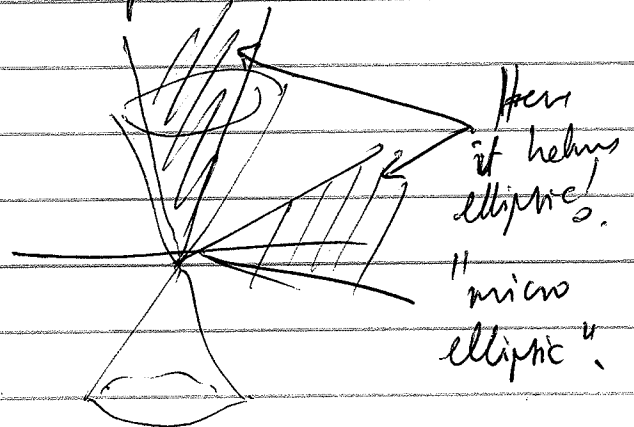 Here
it behaves
elliptic!
"micro
elliptic".